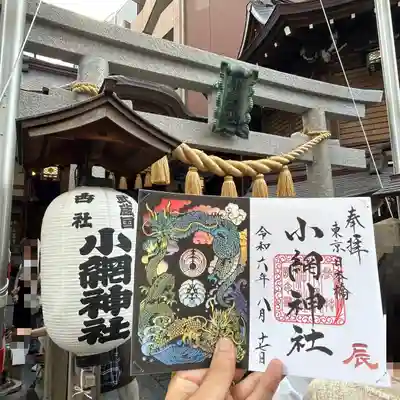 武蔵国
古社
小網神社
奉拝
東京日本橋
小網神社
令和六年八月十七日
辰